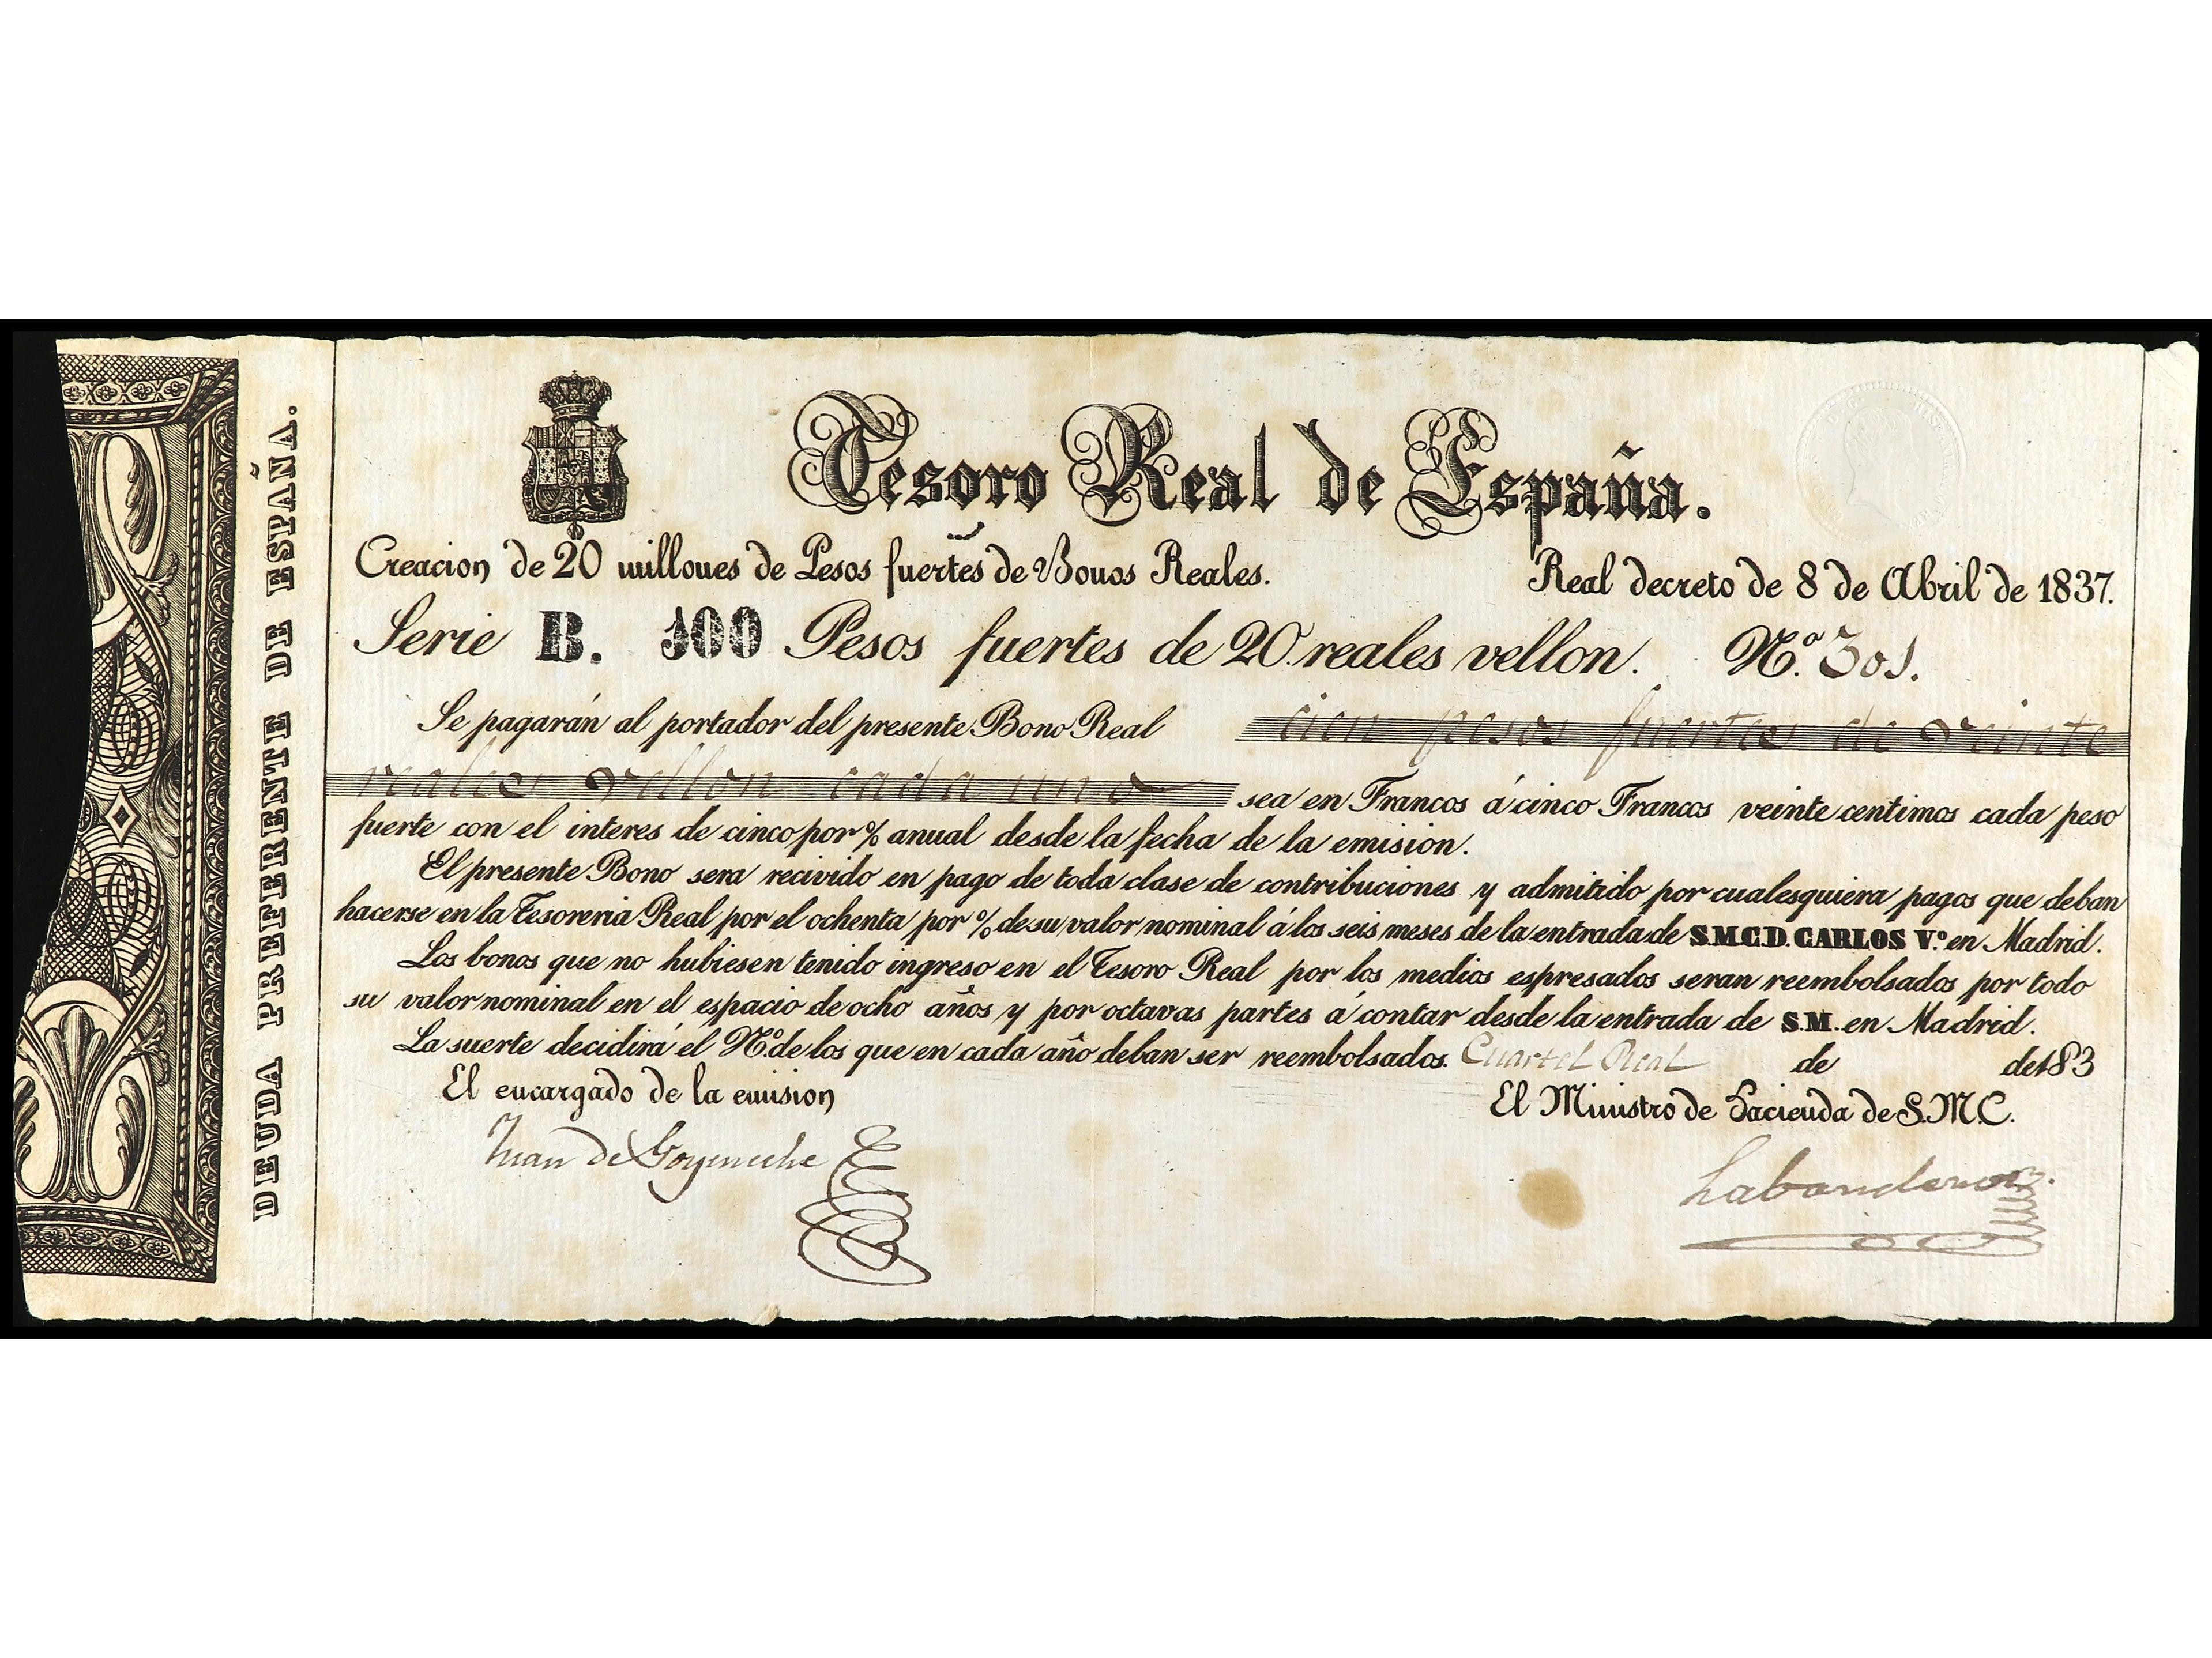 DEUDA PREFERENTE DE ESPAÑA.
Tesoro Real de España.
Creacion de 20 millones de Pesos fuertes de Bonos Reales.
Real decreto de 8 de Abril de 1837.
Serie B. 100 Pesos fuertes de 20 reales vellon. Nº. 301.
Se pagarán al portador del presente Bono Real cien pesos fuertes de veinte
reales vellon cada uno sea en Francos á cinco Francos veinte centimos cada peso
fuerte con el interes de cinco por % anual desde la fecha de la emision.
El presente Bono sera recivido en pago de toda clase de contribuciones y admitido por cualesquiera pagos que deban
hacerse en la Tesoreria Real por el ochenta por % de su valor nominal á los seis meses de la entrada de S.M.C.D. CARLOS Vº. en Madrid.
Los bonos que no hubiesen tenido ingreso en el Tesoro Real por los medios espresados seran reembolsados por todo
su valor nominal en el espacio de ocho años y por octavas partes á contar desde la entrada de S.M. en Madrid.
La suerte decidirá el Nº. de los que en cada año deban ser reembolsados. Cuartel Real de de 183
El encargado de la emision
El Ministro de Hacienda de S.M.C.
Juan de Goyeneche
Labandero